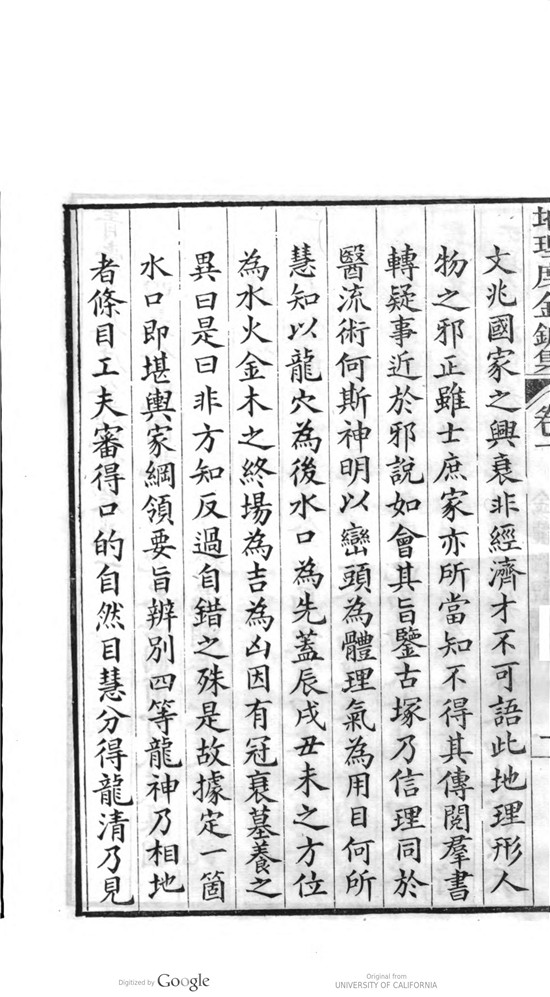 地理度金針集 卷一
文兆國家之興衰非經濟才不可語此地理形人
物之邪正雖士庶家亦所當知不得其傳閱羣書
轉疑事近於邪說如會其旨鑒古塚乃信理同於
醫流術何斯神明以巒頭為體理氣為用目何所
慧知以龍穴為後水口為先蓋辰戌丑未之方位
為水火金木之終場為吉為凶因有冠衰墓養之
異曰是曰非方知反過自錯之殊是故據定一箇
水口即堪輿家綱領要旨辨別四等龍神乃相地
者條目工夫審得口的自然目慧分得龍清乃見
Digitized by Google
Original from
UNIVERSITY OF CALIFORNIA